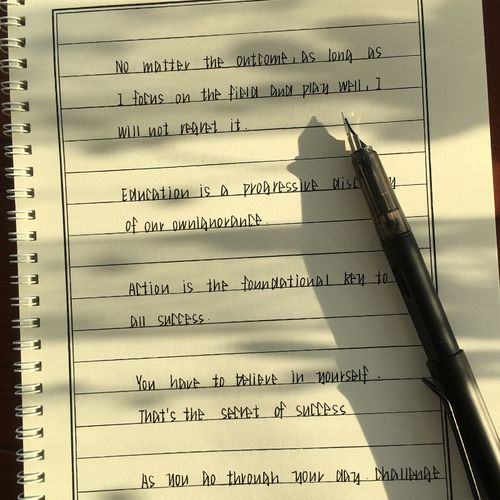 No matter the outcome, as long as
I focus on the field and play well, I
will not regret it.
Education is a progressive
of our ownignorance.
Action is the foundational key to
all success.
You have to believe in yourself.
That's the secret of success
As you go through your day challenge